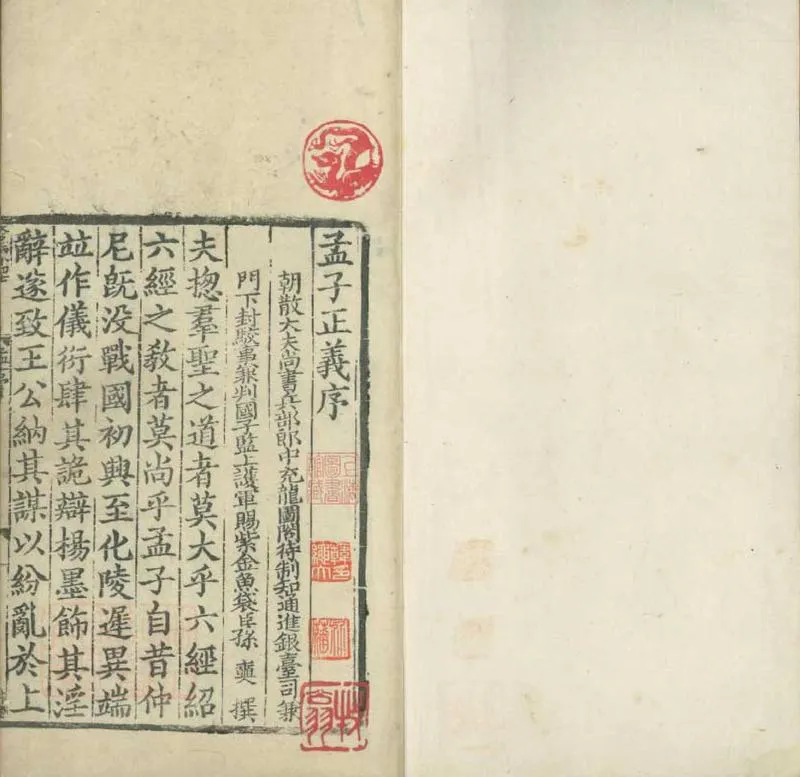 孟子正義序
朝散大夫尚書兵部郎中充龍圖閣待制知通進銀臺司兼
門下封駁事兼判國子監上護軍賜紫金魚袋臣孫 奭 撰
夫揔羣聖之道者莫大乎六經紹
六經之教者莫尚乎孟子自昔仲
尼既没戰國初興至化陵遲異端
竝作儀衍肆其詭辯楊墨飾其淫
辭遂致王公納其謀以紛亂於上